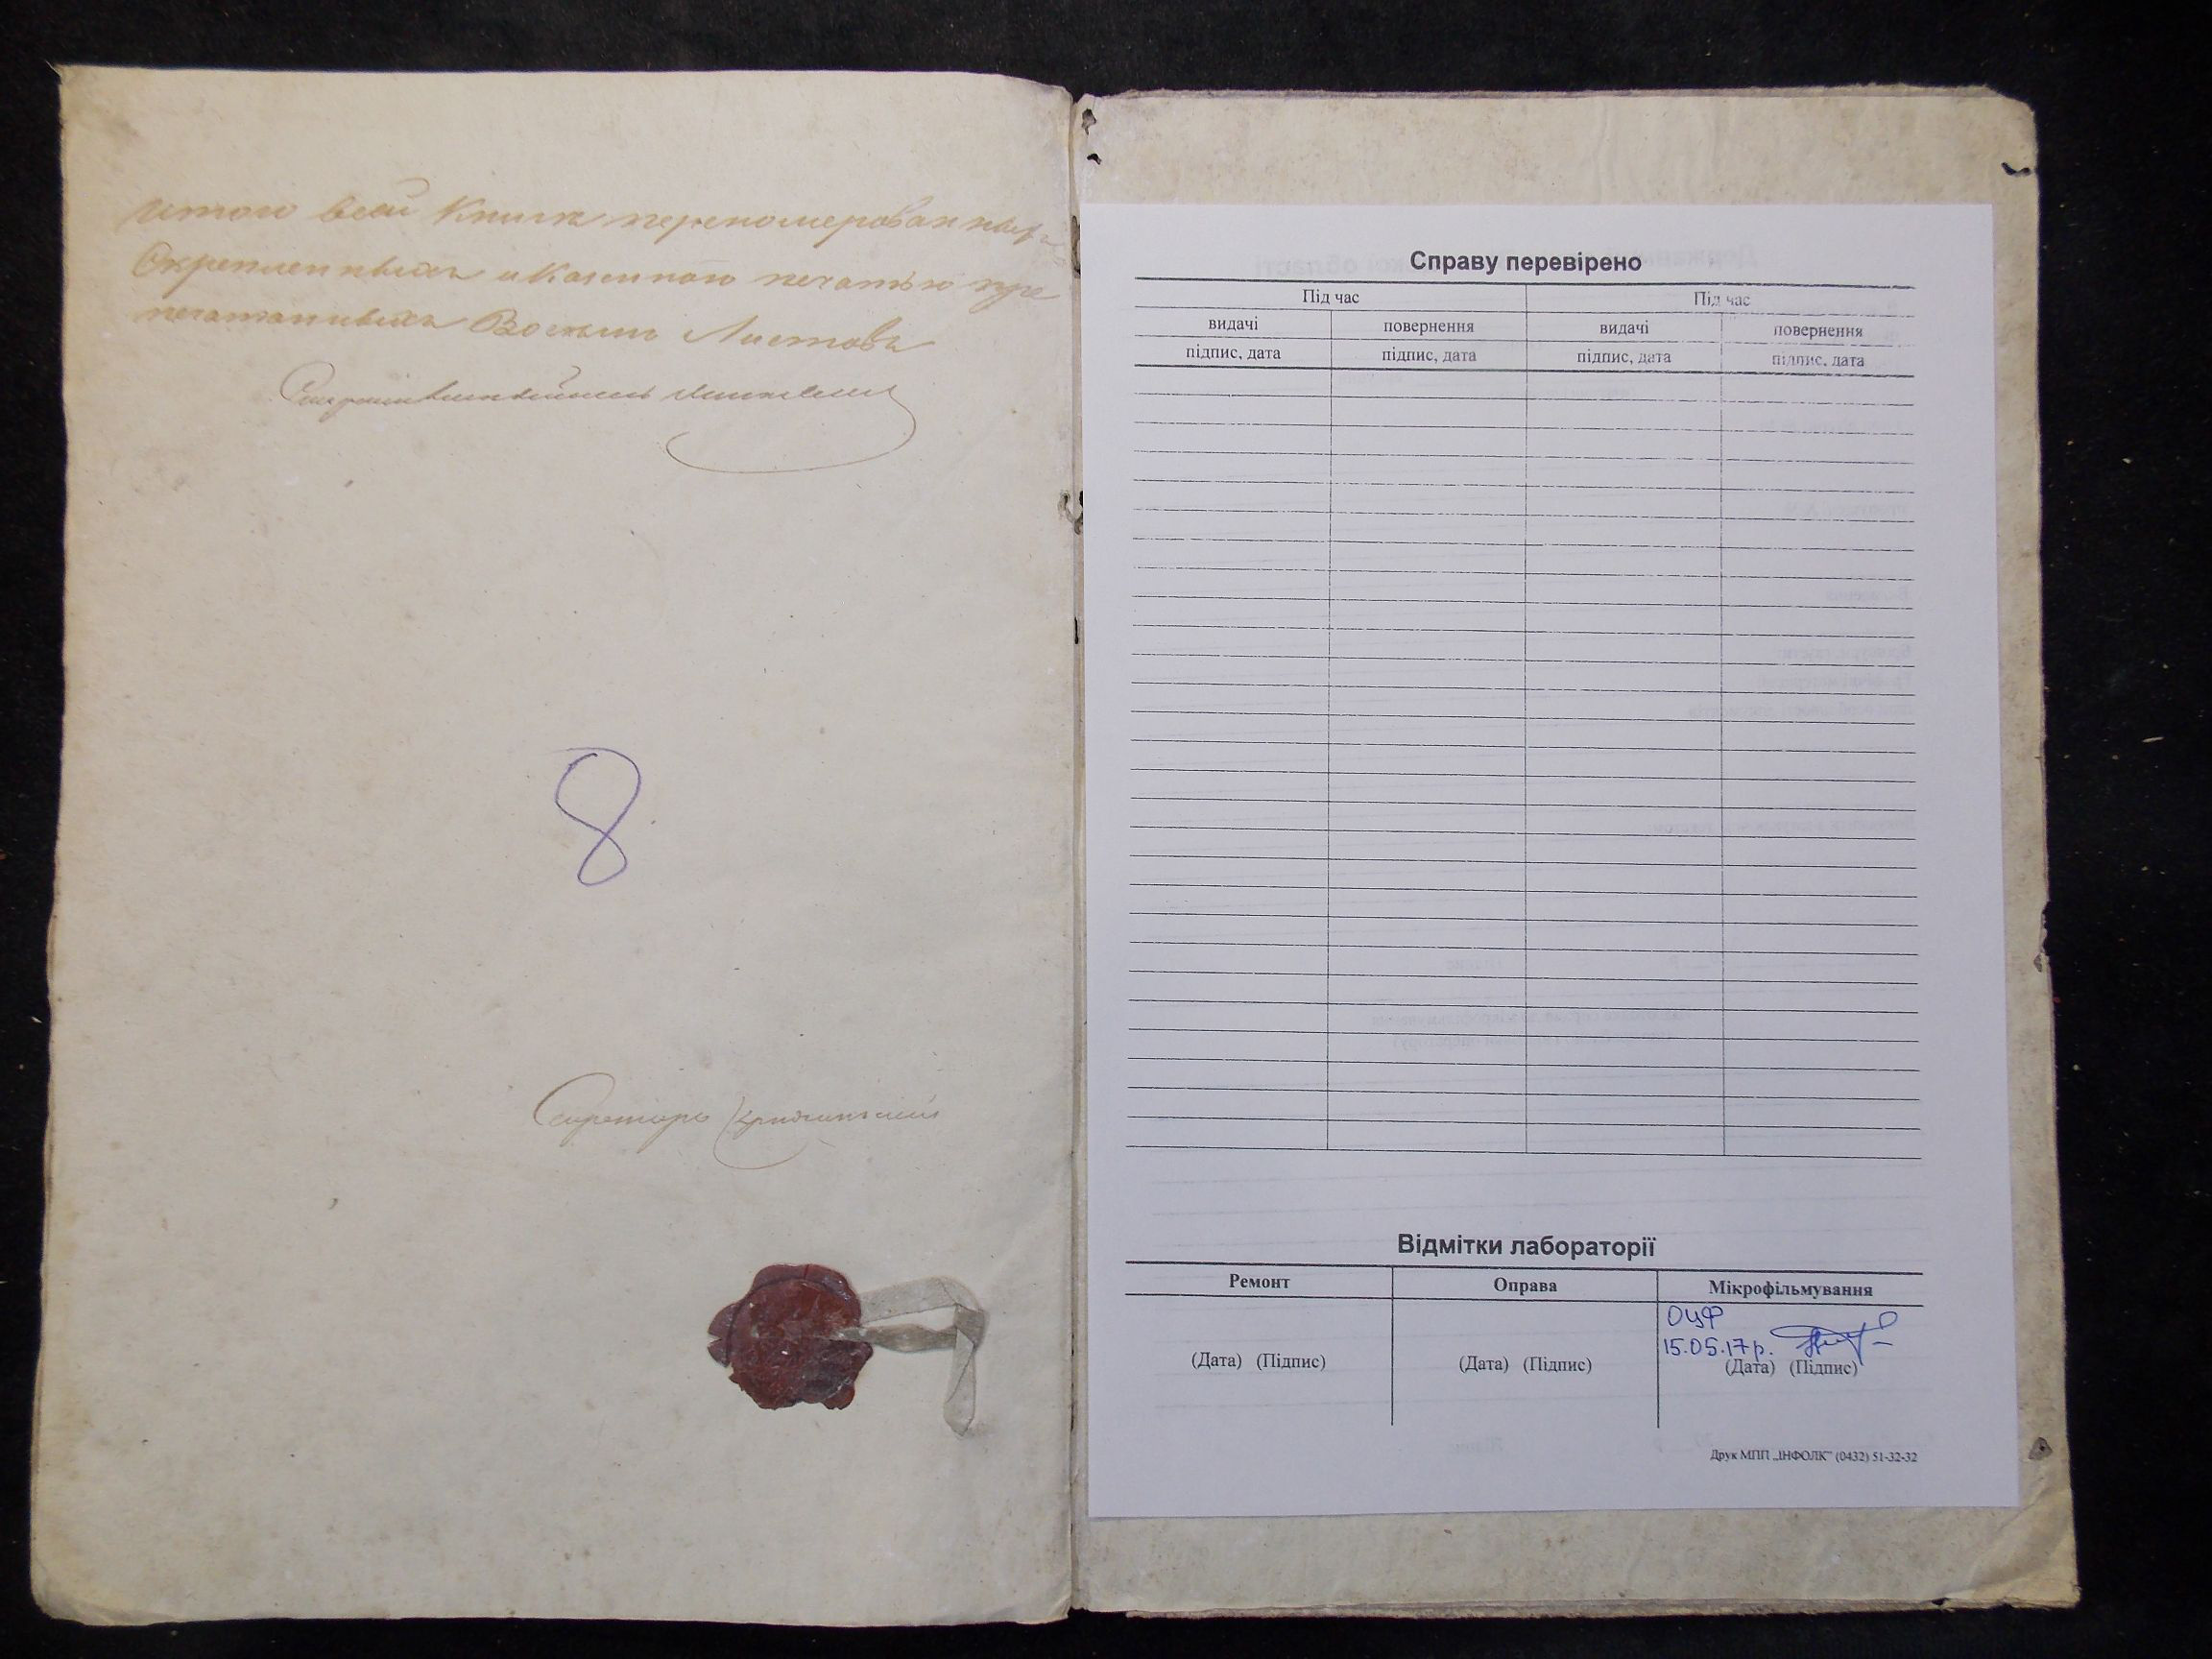 итого всей Книги переномерованныхъ
Скрепленныхъ и Казенною печатью пре
печатанныхъ Восемь Листовъ
8
Секретарь
Справу перевірено
Під час Під час
видачі повернення видачі повернення
підпис, дата підпис, дата підпис, дата підпис, дата
Відмітки лабораторії
Ремонт Оправа Мікрофільмування
ОЦФ
15.05.17р.
(Дата) (Підпис) (Дата) (Підпис) (Дата) (Підпис)
Друк МПП „ІНФОЛК” (0432) 51-32-32